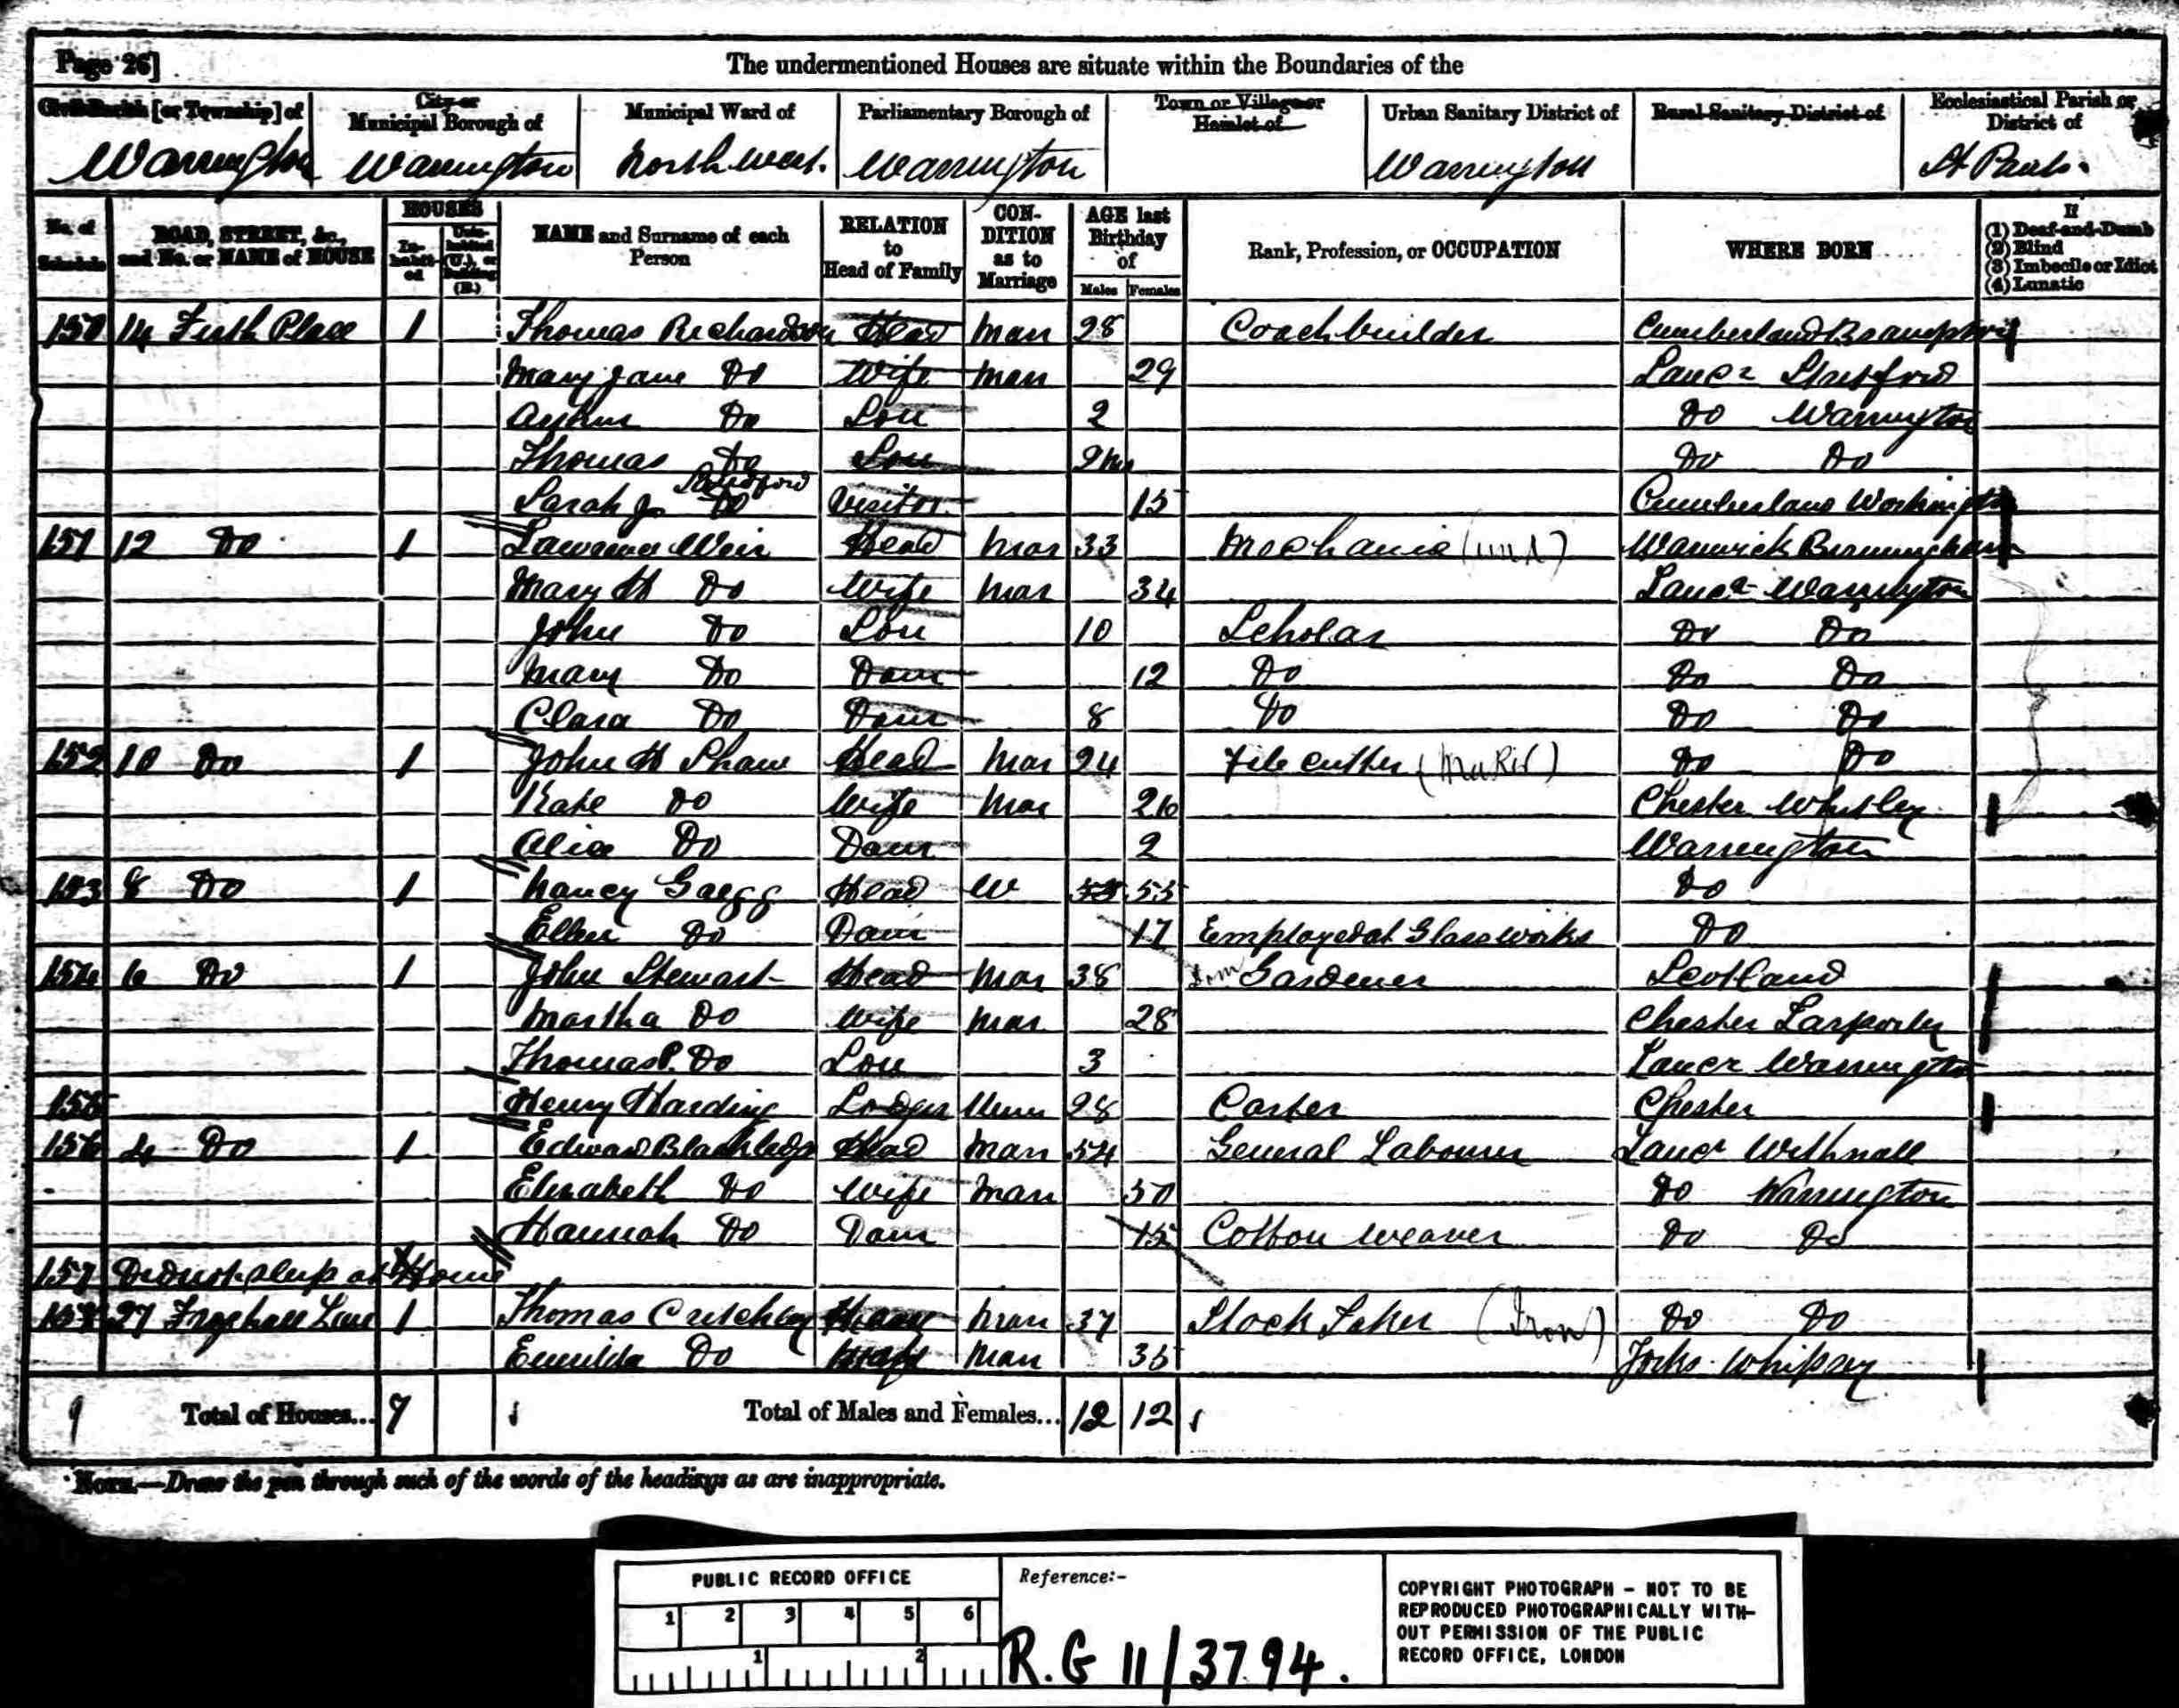 Page 26]
The undermentioned Houses are situate within the Boundaries of the
Civil Parish [or Township] of City or Municipal Borough of Municipal Ward of Parliamentary Borough of Town or Village or Hamlet of Urban Sanitary District of Rural Sanitary District of Ecclesiastical Parish or District of
Warrington Warrington North West. Warrington Warrington St Pauls.
No. of Schedule ROAD, STREET, &c., and No. or NAME of HOUSE HOUSES Inhabited Uninhabited (U.), or Building (B.) NAME and Surname of each Person RELATION to Head of Family CONDITION as to Marriage AGE last Birthday of Males Females Rank, Profession, or OCCUPATION WHERE BORN If (1) Deaf-and-Dumb (2) Blind (3) Imbecile or Idiot (4) Lunatic
150 14 Place 1 Thomas Richardson Head Mar 28 Coachbuilder Cumberland Brampton
Mary Jane Do Wife Mar 29 Lancr Stretford
Arthur Do Son 2 Do Warrington
Thomas Do Son 2 ms Do Do
Sarah J Do Visitor 15 Cumberland Workington
151 12 Do 1 Lawrence Weir Head Mar 33 Mechanic Warwick Birmingham
Mary H Do Wife Mar 34 Lancr Warrington
John Do Son 10 Scholar Do Do
Mary Do Daur 12 Do Do Do
Clara Do Daur 8 Do Do Do
152 10 Do 1 John H Shaw Head Mar 24 File Cutter (Maker) Do Do
Kate Do Wife Mar 26 Chester Whitley
Alice Do Daur 2 Warrington
153 8 Do 1 Nancy Gregg Head W 55 55 Do
Ellen Do Daur 17 Employed at Glass Works Do
154 6 Do 1 John Stewart Head Mar 38 Dom Gardener Scotland
Martha Do Wife Mar 28 Chester Tarporley
Thomas P. Do Son 3 Lancr Warrington
155 Henry Harding Lodger Unm 28 Carter Chester
156 4 Do 1 Edward Blackledge Head Mar 54 General Labourer Lancr Withnall
Elizabeth Do Wife Mar 50 Do Warrington
Hannah Do Daur 15 Cotton Weaver Do Do
157 Did not sleep at Home
158 27 Froghall Lane 1 Thomas Critchley Head Mar 37 Stock Taker (Iron) Do Do
Do Wife Mar 35 Yorks
9 Total of Houses... 7 Total of Males and Females... 12 12
NOTE.—Draw the pen through such of the words of the headings as are inappropriate.
PUBLIC RECORD OFFICE
1 2 3 4 5 6
1 2
Reference:-
R.G 11/3794.
COPYRIGHT PHOTOGRAPH - NOT TO BE
REPRODUCED PHOTOGRAPHICALLY WITH-
OUT PERMISSION OF THE PUBLIC
RECORD OFFICE, LONDON